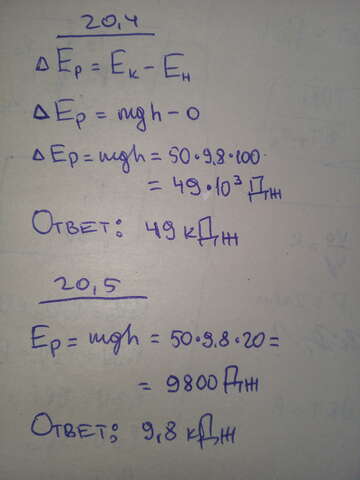 20,4
ΔEр = Eк - Eн
ΔEр = mgh - 0
ΔEр = mgh = 50 • 9,8 • 100
= 49 • 10³ Дж
Ответ: 49 кДж
20,5
Eр = mgh = 50 • 9,8 • 20 =
= 9800 Дж
Ответ: 9,8 кДж